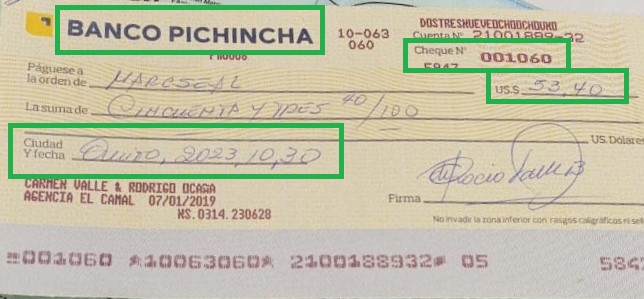 BANCO PICHINCHA
10-063
060
DOSTRESNUEVEOCHOOCHOUNO
Cuenta Nº 21001889-32
Cheque Nº 001060
5847
Páguese a
la orden de MARCSEAL US.$ 53,40
La suma de CINCUENTA Y TRES 40/100
US. Dólares
Ciudad
Y fecha Quito, 2023,10,30
CARMEN VALLE & RODRIGO OCAGA
AGENCIA EL CANAL 07/01/2019
NS.0314.230628
Rocio Valle B
Firma
No invade la zona inferior con rasgos caligráficos ni sel
001060 10063060 2100188932 05 584